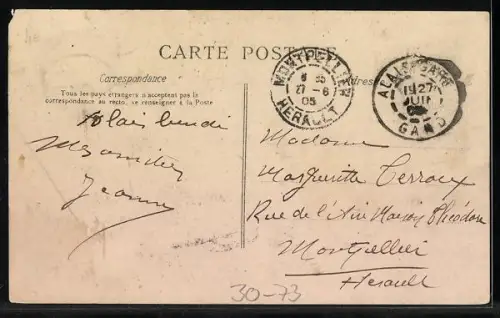 CARTE POSTALE
Correspondance
Tous les pays étrangers n'acceptent pas la
correspondance au recto, se renseigner à la Poste
Adresse
MONTPELLIER
27 -6
05
HERAULT
ALAIS-GARE
27
JUIN
GARD
Alais lundi
Jeanne
Madame
Marguerite Terroux
Rue de l'Aire Maison Théodore
Montpellier
Hérault
30-73